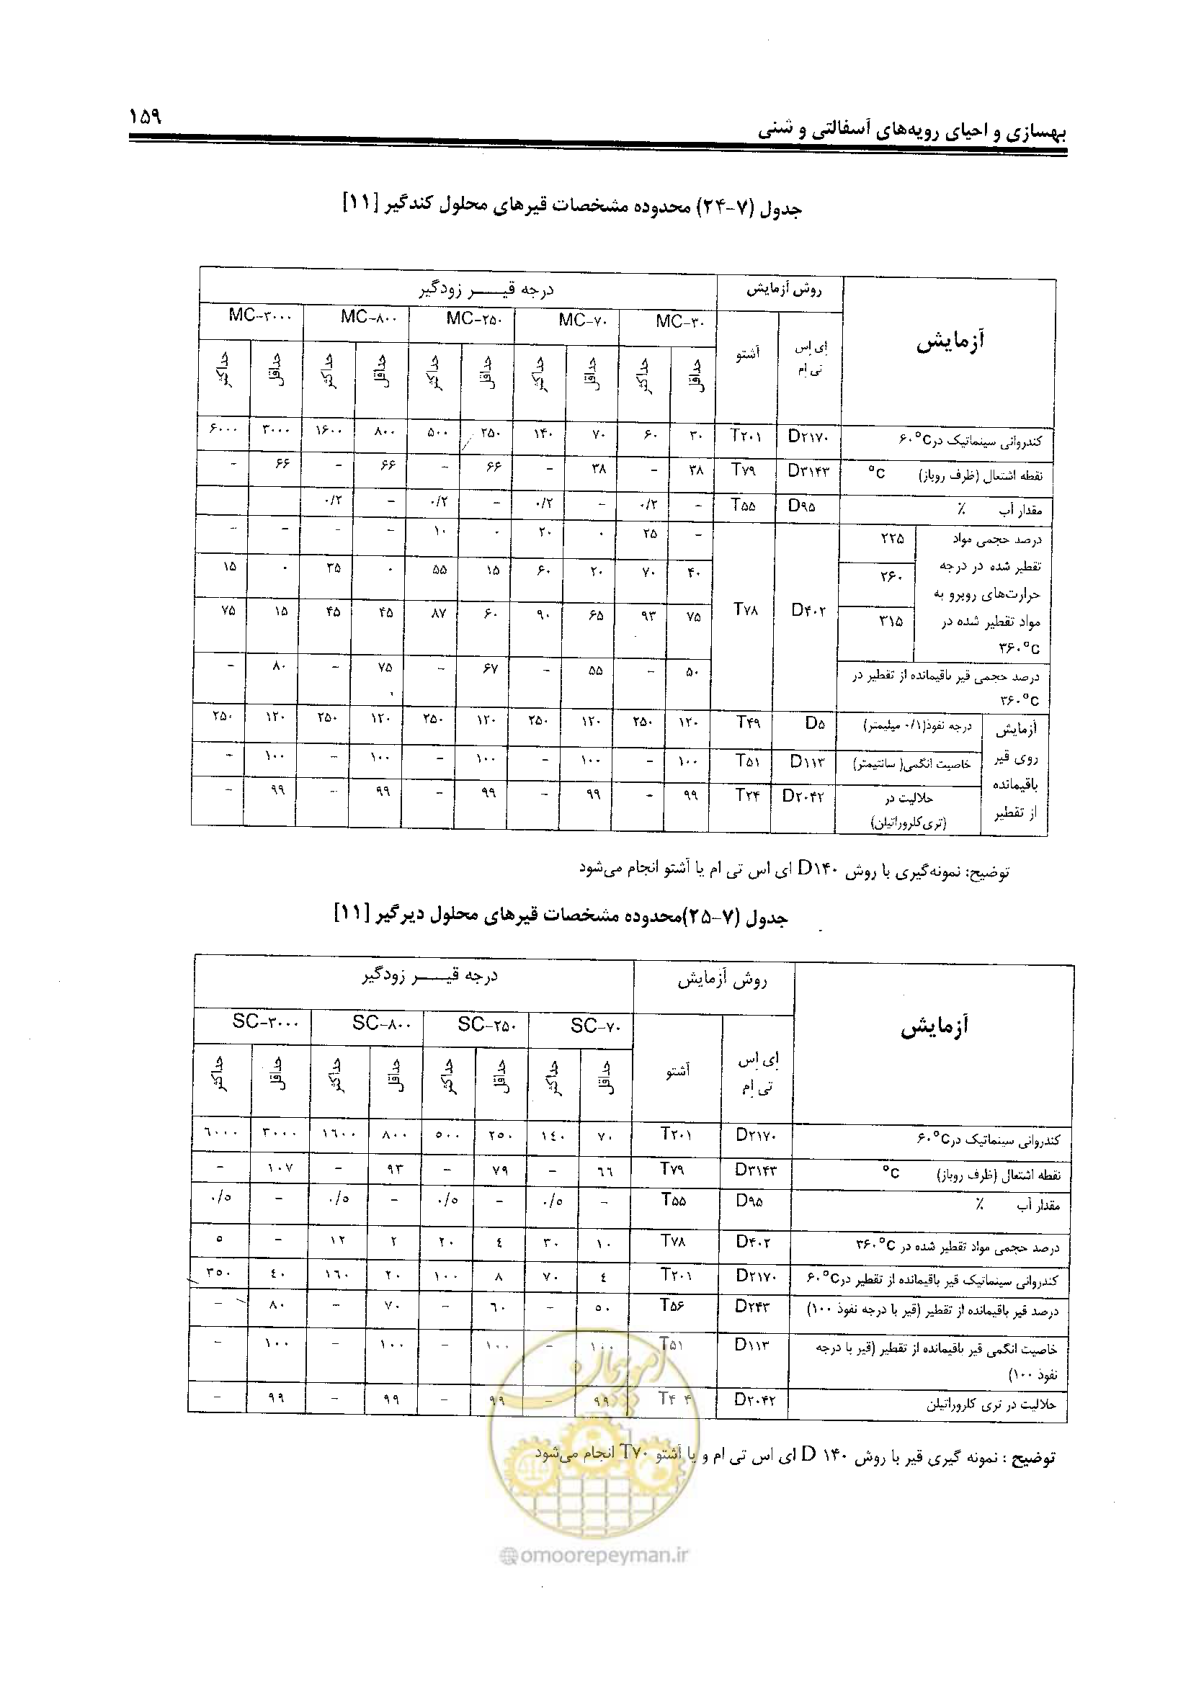 بهسازی و احیای رویه‌های آسفالتی و شنی ۱۵۹
جدول (۷-۲۴) محدوده مشخصات قیرهای محلول کندگیر [۱۱]
آزمایش روش آزمایش درجه قیـــر زودگیر
ای اس تی ام آشتو MC-۳۰ MC-۷۰ MC-۲۵۰ MC-۸۰۰ MC-۳۰۰۰
حداقل حداکثر حداقل حداکثر حداقل حداکثر حداقل حداکثر حداقل حداکثر
کندروانی سینماتیک در ۶۰°C D۲۱۷۰ T۲۰۱ ۳۰ ۶۰ ۷۰ ۱۴۰ ۲۵۰ ۵۰۰ ۸۰۰ ۱۶۰۰ ۳۰۰۰ ۶۰۰۰
نقطه اشتعال (ظرف روباز) °C D۳۱۴۳ T۷۹ ۳۸ – ۳۸ – ۶۶ – ۶۶ – ۶۶ –
مقدار آب ٪ D۹۵ T۵۵ – ۰/۲ – ۰/۲ – ۰/۲ – ۰/۲
درصد حجمی مواد تقطیر شده در درجه حرارت‌های روبرو به مواد تقطیر شده در ۳۶۰°C D۴۰۲ T۷۸
۲۲۵ – ۲۵ ۰ ۲۰ ۰ ۱۰ – – – –
۲۶۰ ۴۰ ۷۰ ۲۰ ۶۰ ۱۵ ۵۵ ۰ ۳۵ ۰ ۱۵
۳۱۵ ۷۵ ۹۳ ۶۵ ۹۰ ۶۰ ۸۷ ۴۵ ۴۵ ۱۵ ۷۵
درصد حجمی قیر باقیمانده از تقطیر در ۳۶۰°C ۵۰ – ۵۵ – ۶۷ – ۷۵ – ۸۰ –
آزمایش روی قیر باقیمانده از تقطیر
درجه نفوذ(۰/۱ میلیمتر) D۵ T۴۹ ۱۲۰ ۲۵۰ ۱۲۰ ۲۵۰ ۱۲۰ ۲۵۰ ۱۲۰ ۲۵۰ ۱۲۰ ۲۵۰
خاصیت انگمی( سانتیمتر) D۱۱۳ T۵۱ ۱۰۰ – ۱۰۰ – ۱۰۰ – ۱۰۰ – ۱۰۰ –
حلالیت در (تری‌کلرواتیلن) D۲۰۴۲ T۴۴ ۹۹ – ۹۹ – ۹۹ – ۹۹ – ۹۹ –
توضیح: نمونه‌گیری با روش D۱۴۰ ای اس تی ام یا آشتو انجام می‌شود
جدول (۷-۲۵)محدوده مشخصات قیرهای محلول دیرگیر [۱۱]
آزمایش روش آزمایش درجه قیـــر زودگیر
ای اس تی ام آشتو SC-۷۰ SC-۲۵۰ SC-۸۰۰ SC-۳۰۰۰
حداقل حداکثر حداقل حداکثر حداقل حداکثر حداقل حداکثر
کندروانی سینماتیک در ۶۰°C D۲۱۷۰ T۲۰۱ ۷۰ ۱٤۰ ۲۵۰ ۵۰۰ ۸۰۰ ۱٦۰۰ ۳۰۰۰ ٦۰۰۰
نقطه اشتعال (ظرف روباز) °C D۳۱۴۳ T۷۹ ٦٦ – ۷۹ – ۹۳ – ۱۰۷ –
مقدار آب ٪ D۹۵ T۵۵ – ۰/۵ – ۰/۵ – ۰/۵ – ۰/۵
درصد حجمی مواد تقطیر شده در ۳۶۰°C D۴۰۲ T۷۸ ۱۰ ۳۰ ٤ ۲۰ ۲ ۱۲ – ۵
کندروانی سینماتیک قیر باقیمانده از تقطیر در ۶۰°C D۲۱۷۰ T۲۰۱ ٤ ۷۰ ۸ ۱۰۰ ۲۰ ۱٦۰ ٤۰ ۳۵۰
درصد قیر باقیمانده از تقطیر (قیر با درجه نفوذ ۱۰۰) D۲۴۳ T۵۶ ۵۰ – ٦۰ – ۷۰ – ۸۰ –
خاصیت انگمی قیر باقیمانده از تقطیر (قیر با درجه نفوذ ۱۰۰) D۱۱۳ T۵۱ ۱۰۰ – ۱۰۰ – ۱۰۰ – ۱۰۰ –
حلالیت در تری کلرواتیلن D۲۰۴۲ T۴۴ ۹۹ – ۹۹ – ۹۹ – ۹۹ –
توضیح : نمونه گیری قیر با روش D ۱۴۰ ای اس تی ام و یا آشتو T۷۰ انجام می‌شود
امور پیمان
@omoorepeyman.ir